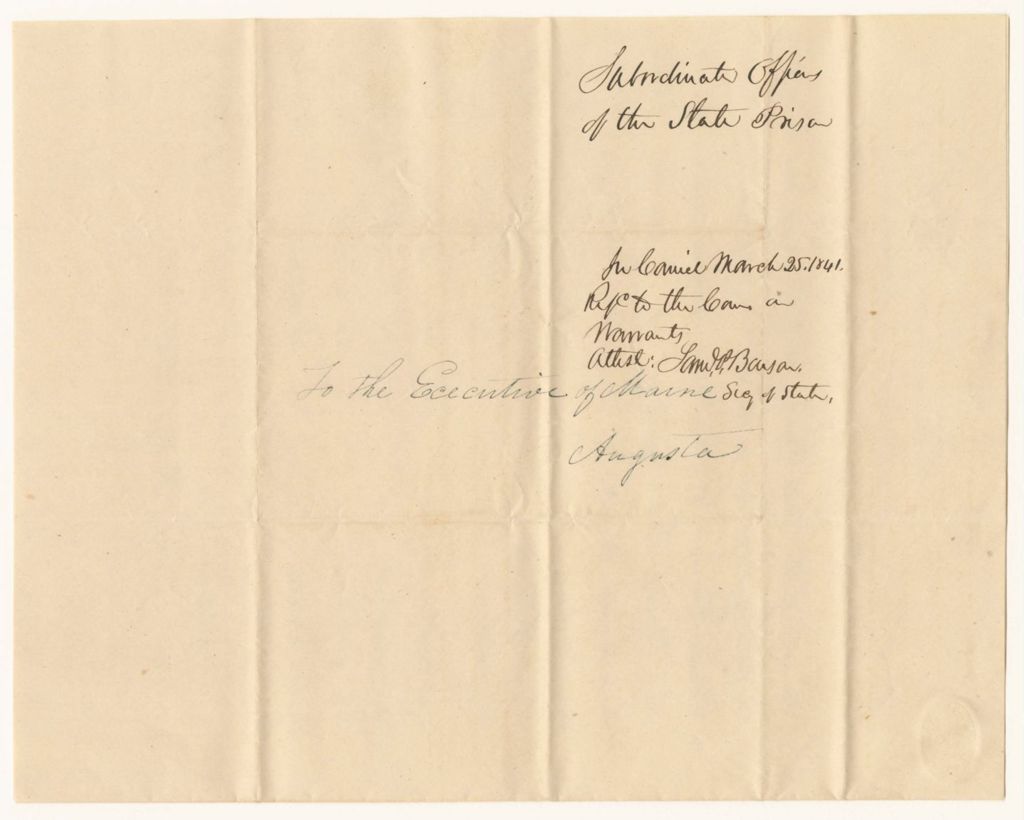 Subordinate Officers
of the State Prison
In Council March 25. 1841.
Refd to the Com. on
Warrants
Attest:
Sec. of State.
To the Executive of Maine
Augusta